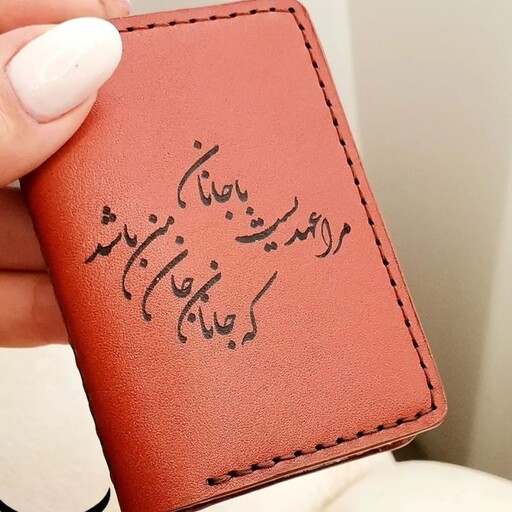 مرا عهدیست با جانان
که جانان جان من باشد